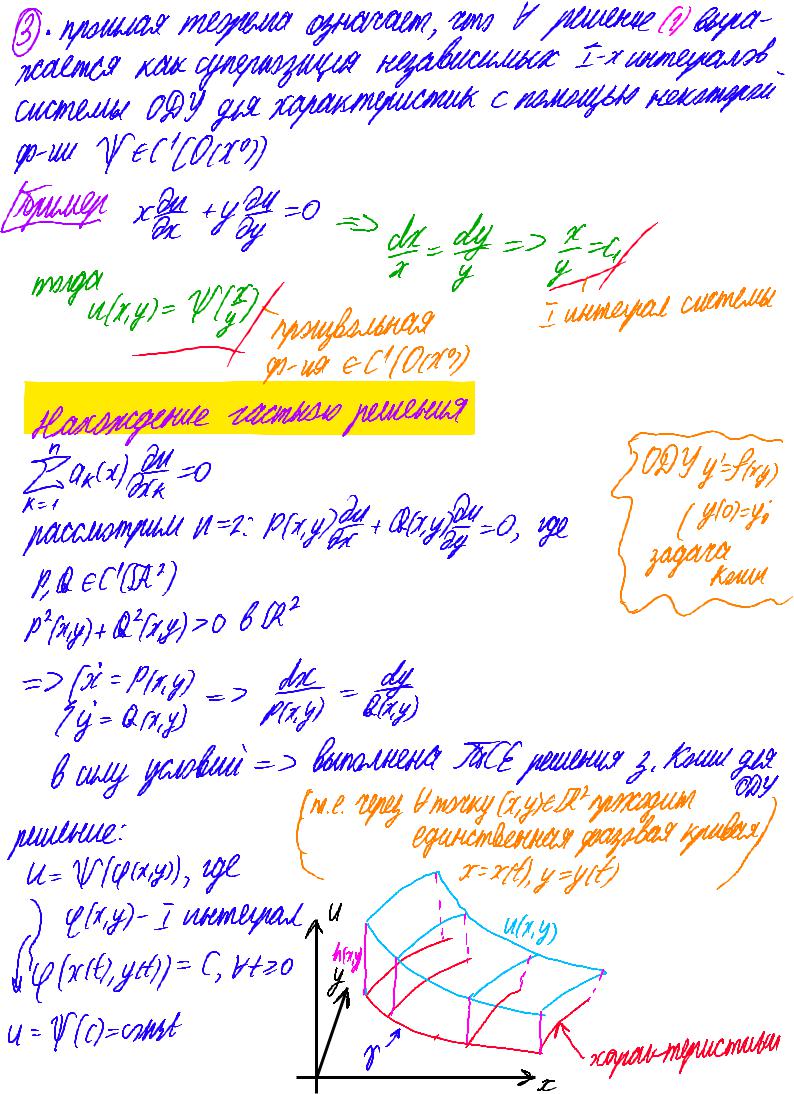 ③. прошлая теорема означает, что ∀ решение (1) выра-
жается как суперпозиция независимых I-х интегралов
системы ОДУ для характеристик с помощью некоторой
ф-ии Ψ ∈ C¹(O(x⁰))
Пример x ∂u/∂x + y ∂u/∂y = 0 => dx/x = dy/y => x/y = C₁
I интеграл системы
тогда
u(x,y) = Ψ(x/y)
произвольная
ф-ия ∈ C¹(O(x⁰))
Нахождение частного решения
∑ₖ₌₁ⁿ aₖ(x) ∂u/∂xₖ = 0
рассмотрим n=2: P(x,y) ∂u/∂x + Q(x,y) ∂u/∂y = 0, где
P, Q ∈ C¹(ℝ²)
P²(x,y) + Q²(x,y) > 0 в ℝ²
ОДУ y' = f(x,y)
y(0) = y₀
задача
Коши
=> { ẋ = P(x,y)
ẏ = Q(x,y) => dx/P(x,y) = dy/Q(x,y)
в силу условий => выполнена решения з. Коши для
ОДУ
(т.е. через ∀ точку (x,y) ∈ ℝ² проходит
единственная фазовая кривая
x = x(t), y = y(t))
решение:
u = Ψ(φ(x,y)), где
φ(x,y) – I интеграл
φ(x(t), y(t)) = C, ∀t ≥ 0
u = Ψ(c) = const
u
h(x,y)
y
u(x,y)
γ
x
характеристики